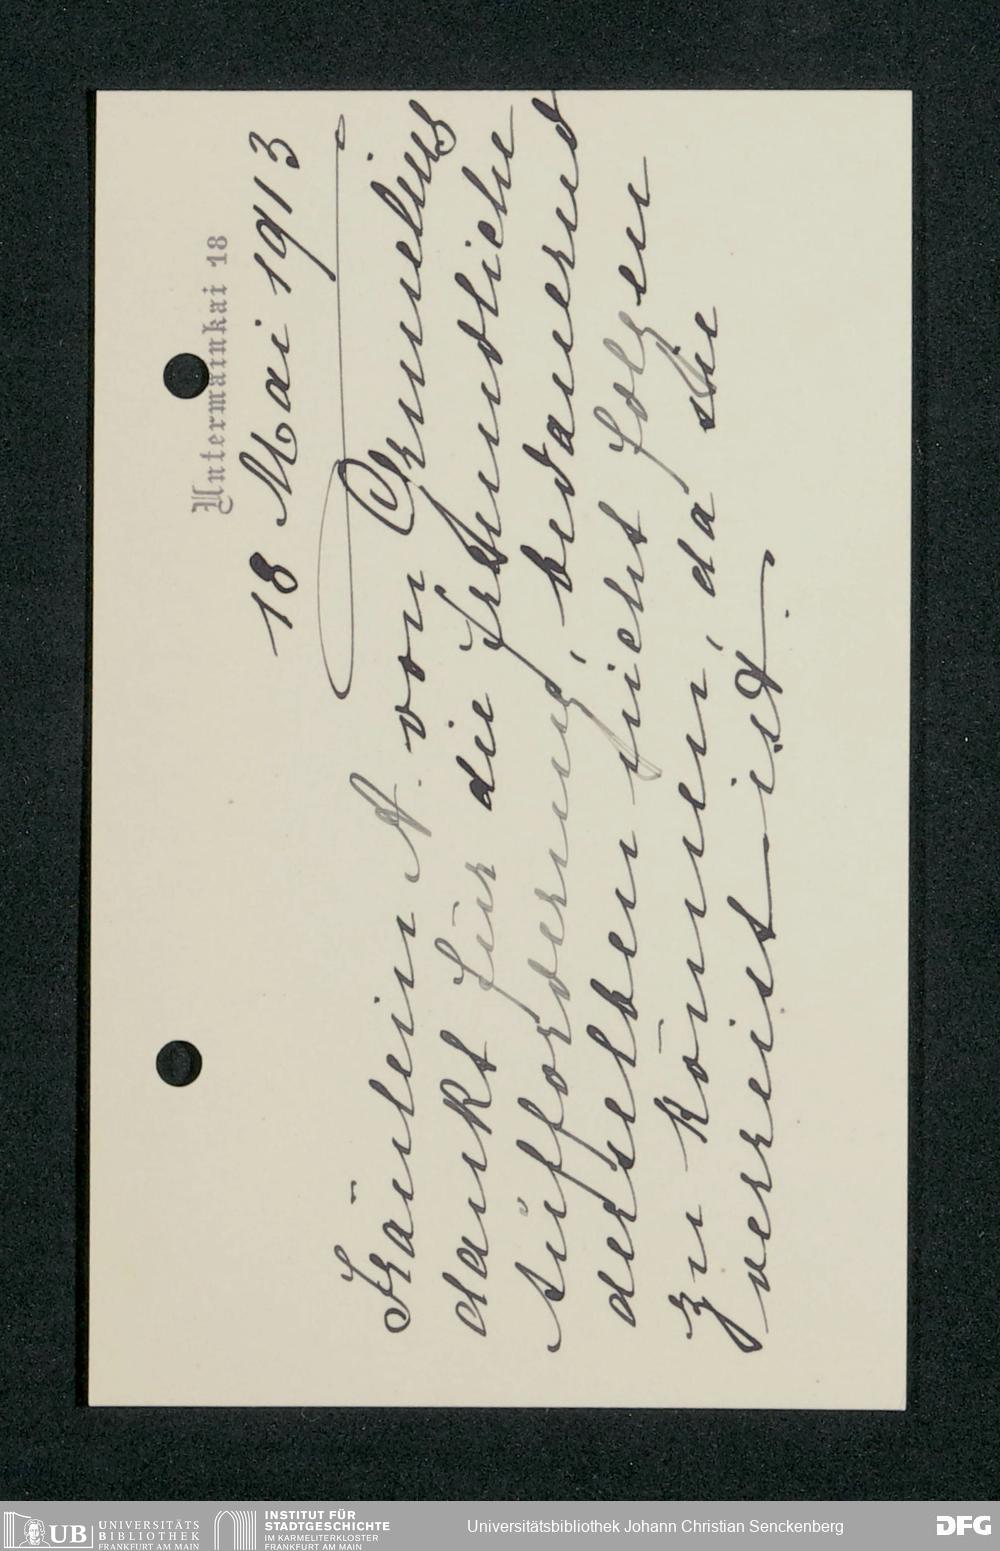 Untermainkai 18
18 Mai 1913
Fräulein A. von
dankt für die freundliche
Aufforderung, bedauernd
derselben nicht folgen
zu können, da sie
verreist ist.
UB UNIVERSITÄTS
BIBLIOTHEK
FRANKFURT AM MAIN
INSTITUT FÜR
STADTGESCHICHTE
IM KARMELITERKLOSTER
FRANKFURT AM MAIN
Universitätsbibliothek Johann Christian Senckenberg
DFG